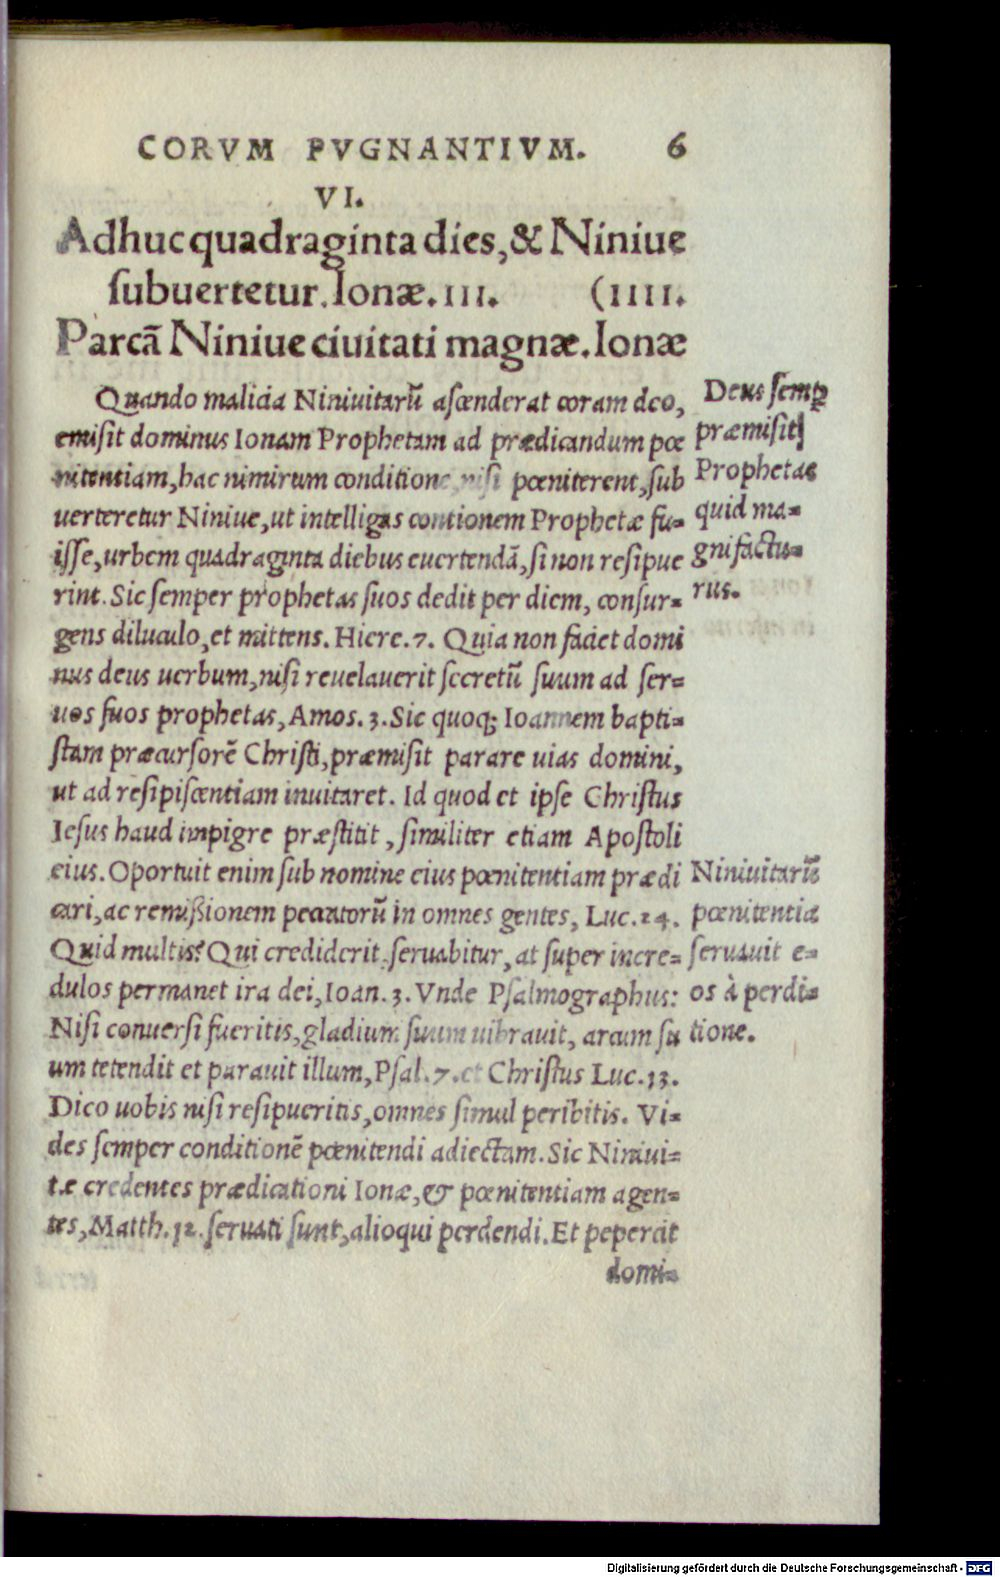 CORVM PVGNANTIVM. 6
VI.
Adhuc quadraginta dies, & Niniue
subuertetur. Ionæ. III. (IIII.
Parcã Niniue ciuitati magnæ. Ionæ
Quando malicia Niniuitarũ ascenderat coram deo,
emisit dominus Ionam Prophetam ad prædicandum pœ
nitentiam, hac nimirum conditione, nisi pœniterent, sub
uerteretur Niniue, ut intelligas contionem Prophetæ fu=
isse, urbem quadraginta diebus euertendã, si non resipue
rint. Sic semper prophetas suos dedit per diem, consur=
gens diluculo, et mittens. Hiere. 7. Quia non faciet domi
nus deus uerbum, nisi reuelauerit secretũ suum ad ser=
uos suos prophetas, Amos. 3. Sic quoq; Ioannem bapti=
stam præcursorẽ Christi, præmisit parare uias domini,
ut ad resipiscentiam inuitaret. Id quod et ipse Christus
Iesus haud impigre præstitit, similiter etiam Apostoli
eius. Oportuit enim sub nomine eius pœnitentiam prædi
cari, ac remißionem peccatorũ in omnes gentes, Luc. 24.
Quid multis? Qui crediderit seruabitur, at super incre=
dulos permanet ira dei, Ioan. 3. Vnde Psalmographus:
Nisi conuersi fueritis, gladium suum uibrauit, arcum su
um tetendit et parauit illum, Psal. 7. et Christus Luc. 13.
Dico uobis nisi resipueritis, omnes simul peribitis. Vi=
des semper conditionẽ pœnitendi adiectam. Sic Niniui=
tæ credentes prædicationi Ionæ, & pœnitentiam agen=
tes, Matth. 12. seruati sunt, alioqui perdendi. Et pepercit
domi=
Deus semꝑ
præmisit
Prophetas
quid ma=
gni factu=
rus.
Niniuitarũ
pœnitentia
seruauit e=
os à perdi=
tione.
Digitalisierung gefördert durch die Deutsche Forschungsgemeinschaft - DFG